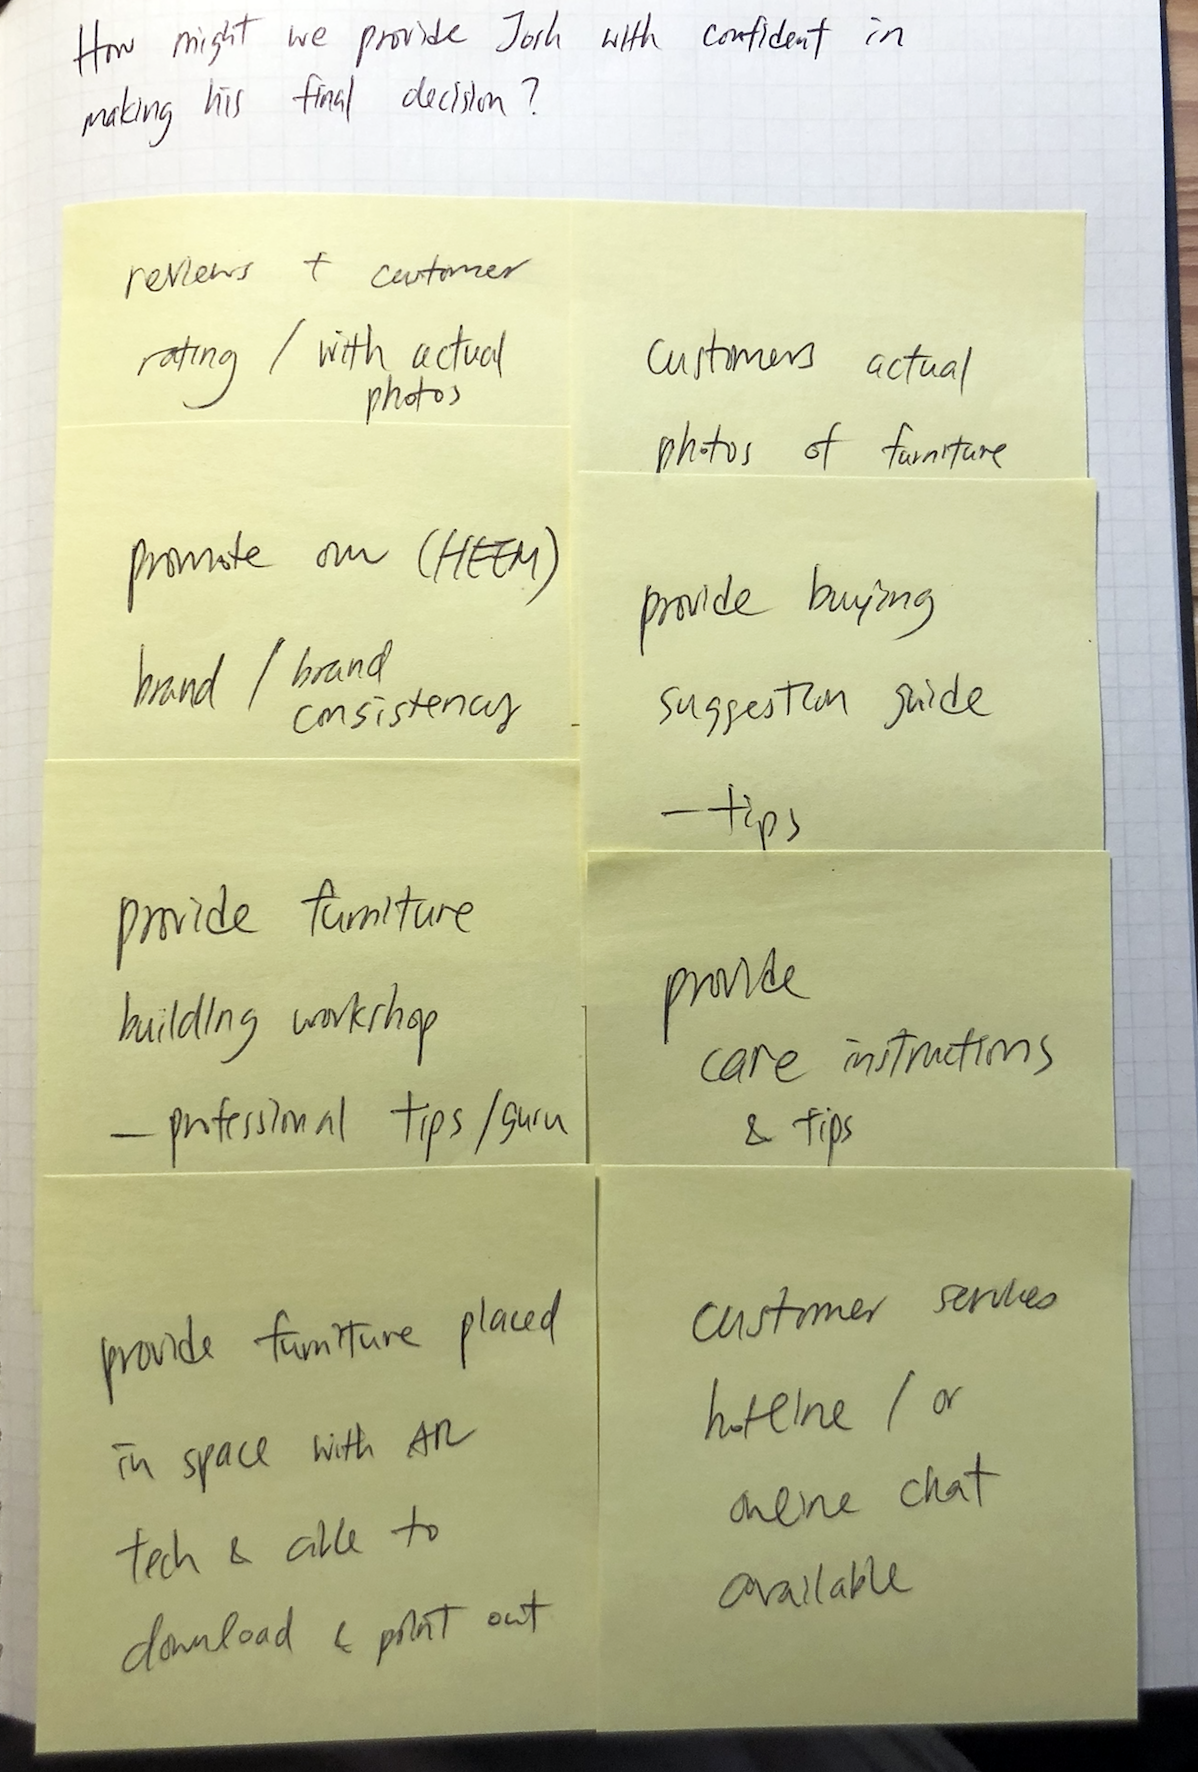 How might we provide Josh with confident in
making his final decision?
reviews + customer
rating / with actual
photos
customers actual
photos of furniture
promote our (HEEM)
brand / brand
consistency
provide buying
suggestion guide
- tips
provide furniture
building workshop
- professional tips / guru
provide
care instructions
& tips
provide furniture placed
in space with AR
tech & able to
download & print out
customer services
hotline / or
online chat
available